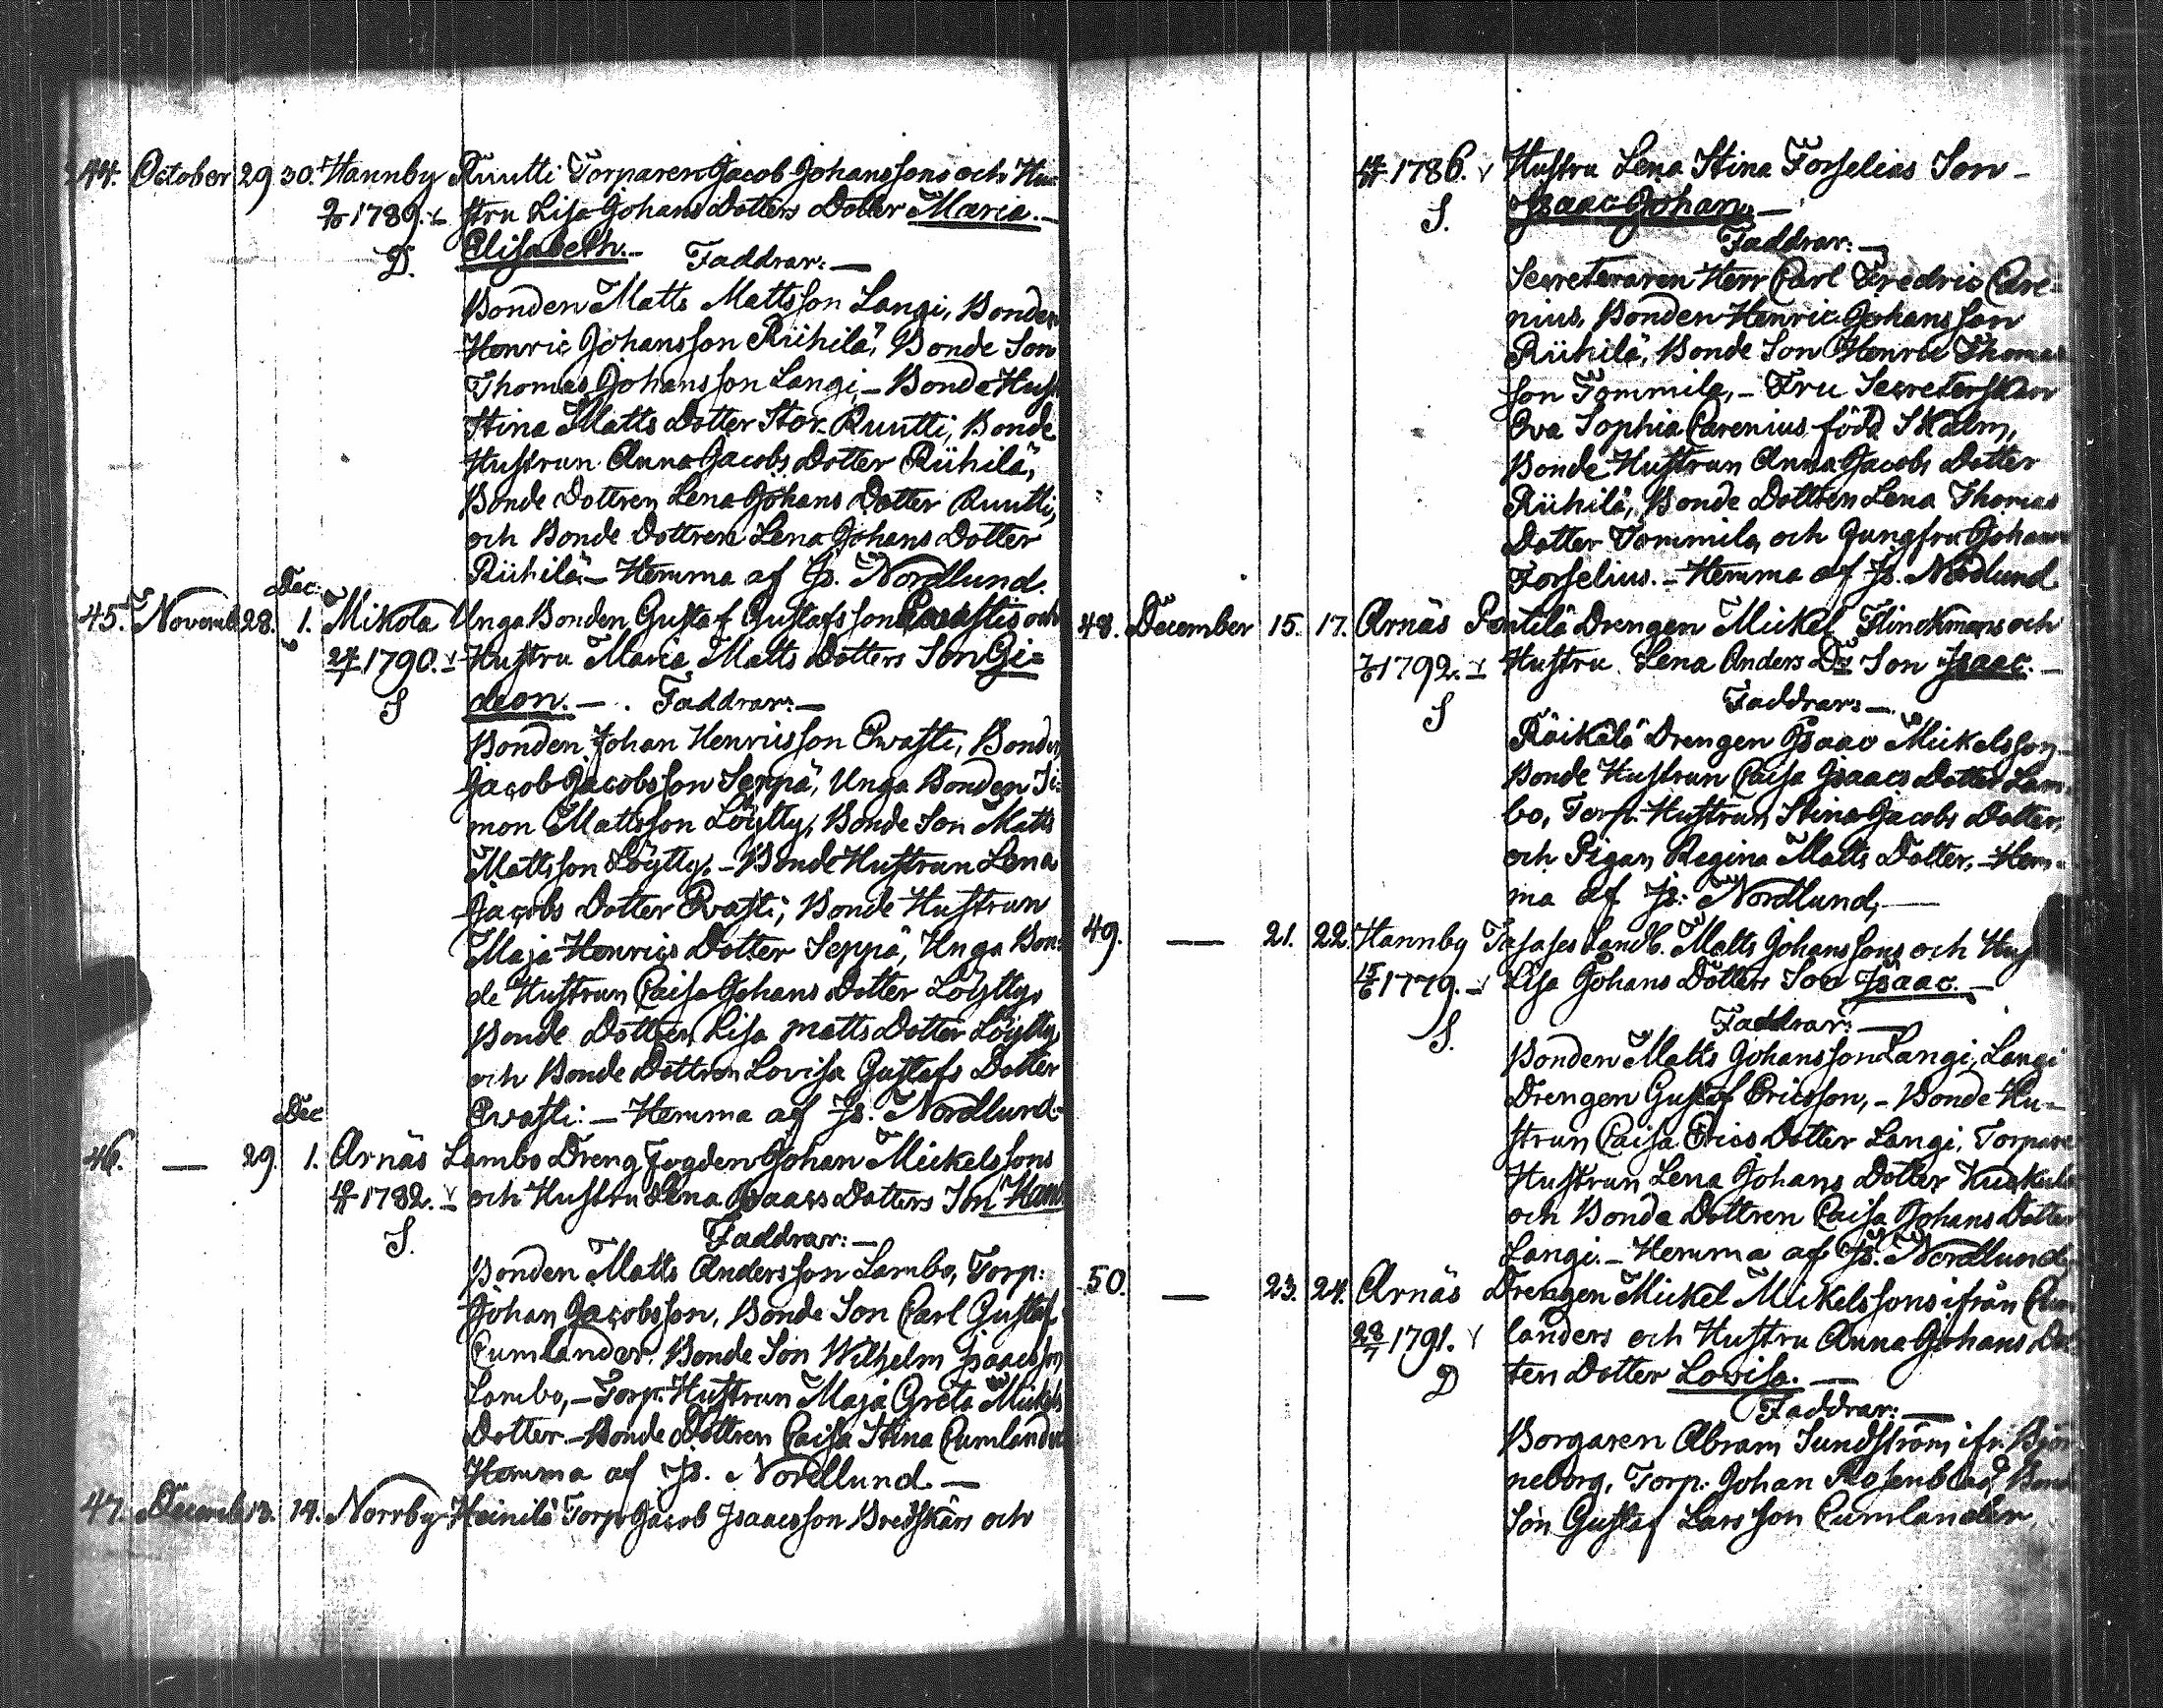 44. October 29 30. Hannby Ruutti Torparen Jacob Johanssons och Hu-
2/10 1789. stru Lisa Johans Dotters Dotter Maria
D. Elisabeth. Faddrar:
Bonden Matts Mattsson Langi, Bonden
Henric Johansson Riihilä, Bonde Son
Thomas Johansson Langi, Bonde Hust
Stina Matts Dotter Stor Ruutti, Bonde
Hustrun Anna Jacobs Dotter Riihilä,
Bonde Dottren Lena Johans Dotter Ruutti,
och Bonde Dottren Lena Johans Dotter
Riihilä. Hemma af Js. Nordlund.
Dec:
45. Novemb 28. 1. Mikola Unga Bonden Gustaf Gustafsson och
1790. Hustru Maria Matts Dotters Son Gi=
S deon. Faddrar:
Bonden Johan Henricsson Ewasti, Bonden
Jacob Jacobsson Seppä, Unga Bonden Si-
mon Mattsson Löytty, Bonde Son Matts
Mattsson Löytty. Bonde Hustrun Lena
Jacobs Dotter Ewasti, Bonde Hustrun
Maja Henrics Dotter Seppä, Unga Bon-
de Hustrun Caisa Johans Dotter Löytty,
Bonde Dottren Lisa Matts Dotter Löytty
och Bonde Dottren Lovisa Gustafs Dotter
Ewasti. Hemma af Js. Nordlund.
Dec
46. — 29. 1. Arnäs Lambo Dreng Fogden Johan Mickelssons
1782. och Hustru Lena Isaacs Dotters Son
S. Faddrar:
Bonden Matts Andersson Lambo, Torp:
Johan Jacobsson, Bonde Son Carl Gustaf
Cumlander. Bonde Son Wilhelm Isaacsson
Lambo, Torp. Hustrun Maja Greta Mickels
Dotter Bonde Dottren Caisa Stina Cumlander
Hemma af Js. Nordlund
47. Decemb 13. 14. Norrby Heinilä Torp Jacob Isaacsson Bredskärs och
1786. Hustru Lena Stina Forselias Son
S. Isaac Johan
Faddrar:
Secreteraren Herr Carl Fredric Care-
nius, Bonden Henric Johansson
Riihilä, Bonde Son Henric Thomas
son Tommila, Fru Secreterskan
Eva Sophia Carenius född Skalm,
Bonde Hustrun Anna Jacobs Dotter
Riihilä, Bonde Dottren Lena Thomas
Dotter Tommila, och Jungfru Johan
Forselius. Hemma af Js. Nordlund
48. December 15. 17. Arnäs Penttilä Drengen Mickel Flinckmans och
1792. Hustru Lena Anders Dr Son Isaac.
S Faddrar:
Räikälä Drengen Isaac Mickelsson
Bonde Hustrun Caisa Isaacs Dotter Lam-
bo, Torp. Hustrun Stina Jacobs Dotter,
och Pigan Regina Matts Dotter. Hem-
ma af Js: Nordlund,
49. — 21. 22. Hannby Landb. Matts Johanssons och Hus
15/6 1779. Lisa Johans Dotters Son Isaac.
S. Faddrar:
Bonden Matts Johansson Langi, Langi
Drengen Gustaf Ericsson, Bonde Hu-
strun Caisa Erics Dotter Langi, Torpare
Hustrun Lena Johans Dotter
och Bonde Dottren Caisa Johans Dotter
Langi. Hemma af Js. Nordlund
50. — 23. 24. Arnäs Drengen Mickel Mickelssons ifrån Cum
28/7 1791. landers och Hustru Anna Johans Dot
D ters Dotter Lovisa.
Faddrar:
Borgaren Abram Sundström ifr. Björ
neborg, Torp. Johan Rosenblad, Bonde
Son Gustaf Larsson Cumlander